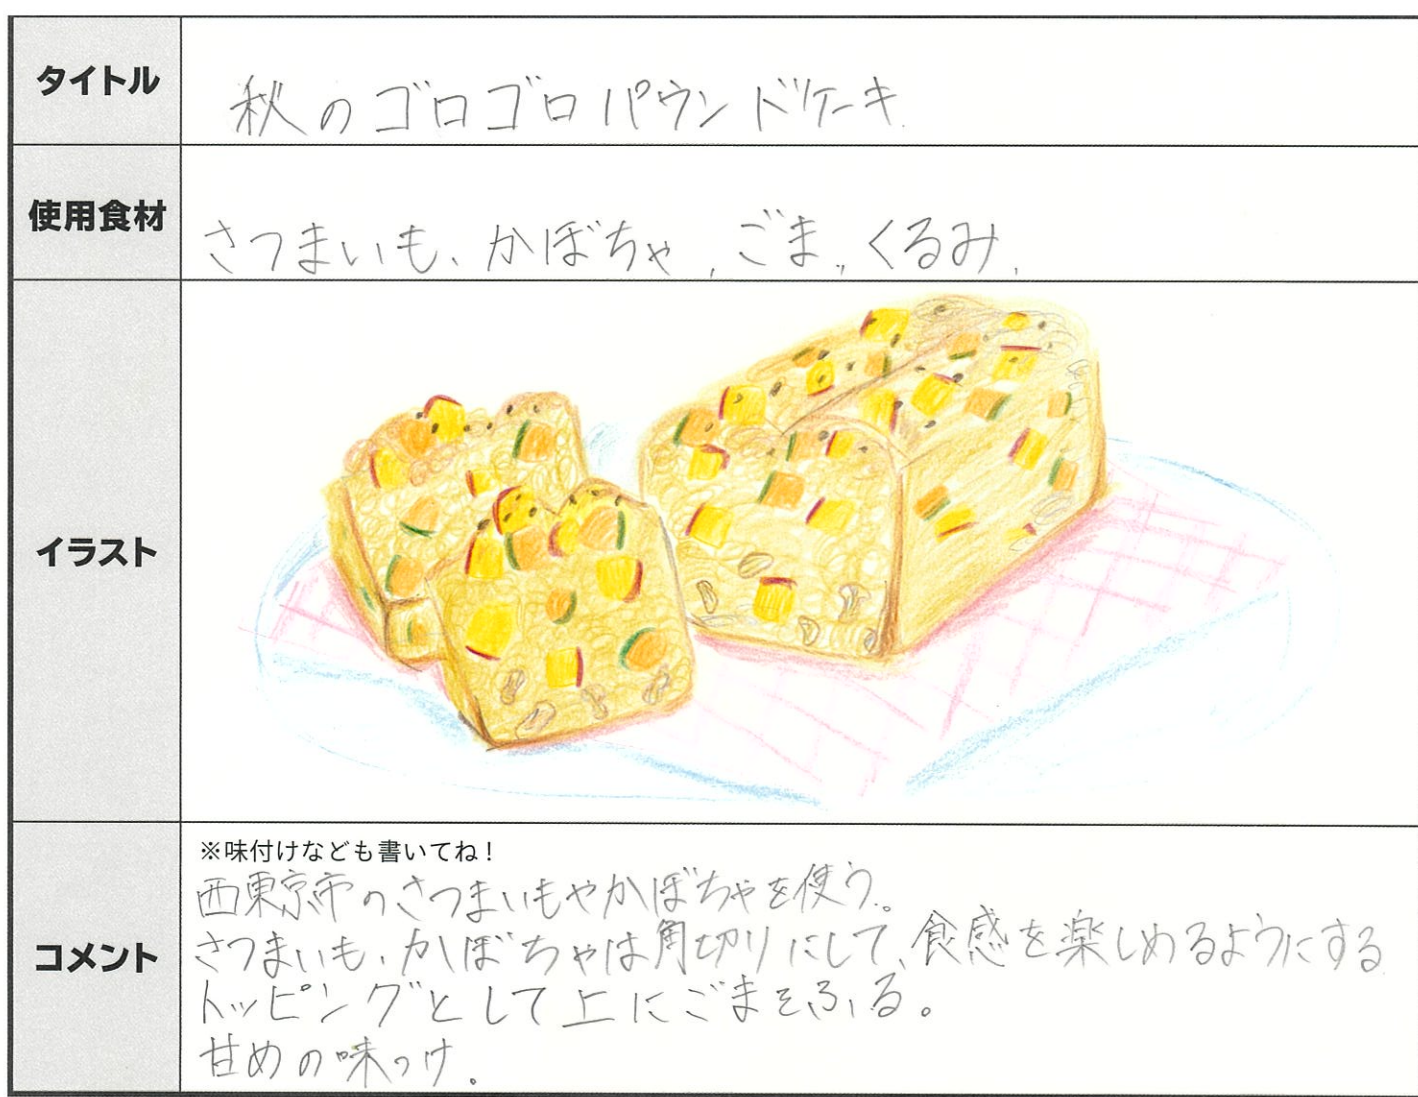 タイトル
秋のゴロゴロパウンドケーキ
使用食材
さつまいも、かぼちゃ、ごま、くるみ、
イラスト
コメント
※味付けなども書いてね！
西東京市のさつまいもやかぼちゃを使う。
さつまいも、かぼちゃは角切りにして、食感を楽しめるようにする
トッピングとして上にごまをふる。
甘めの味つけ。